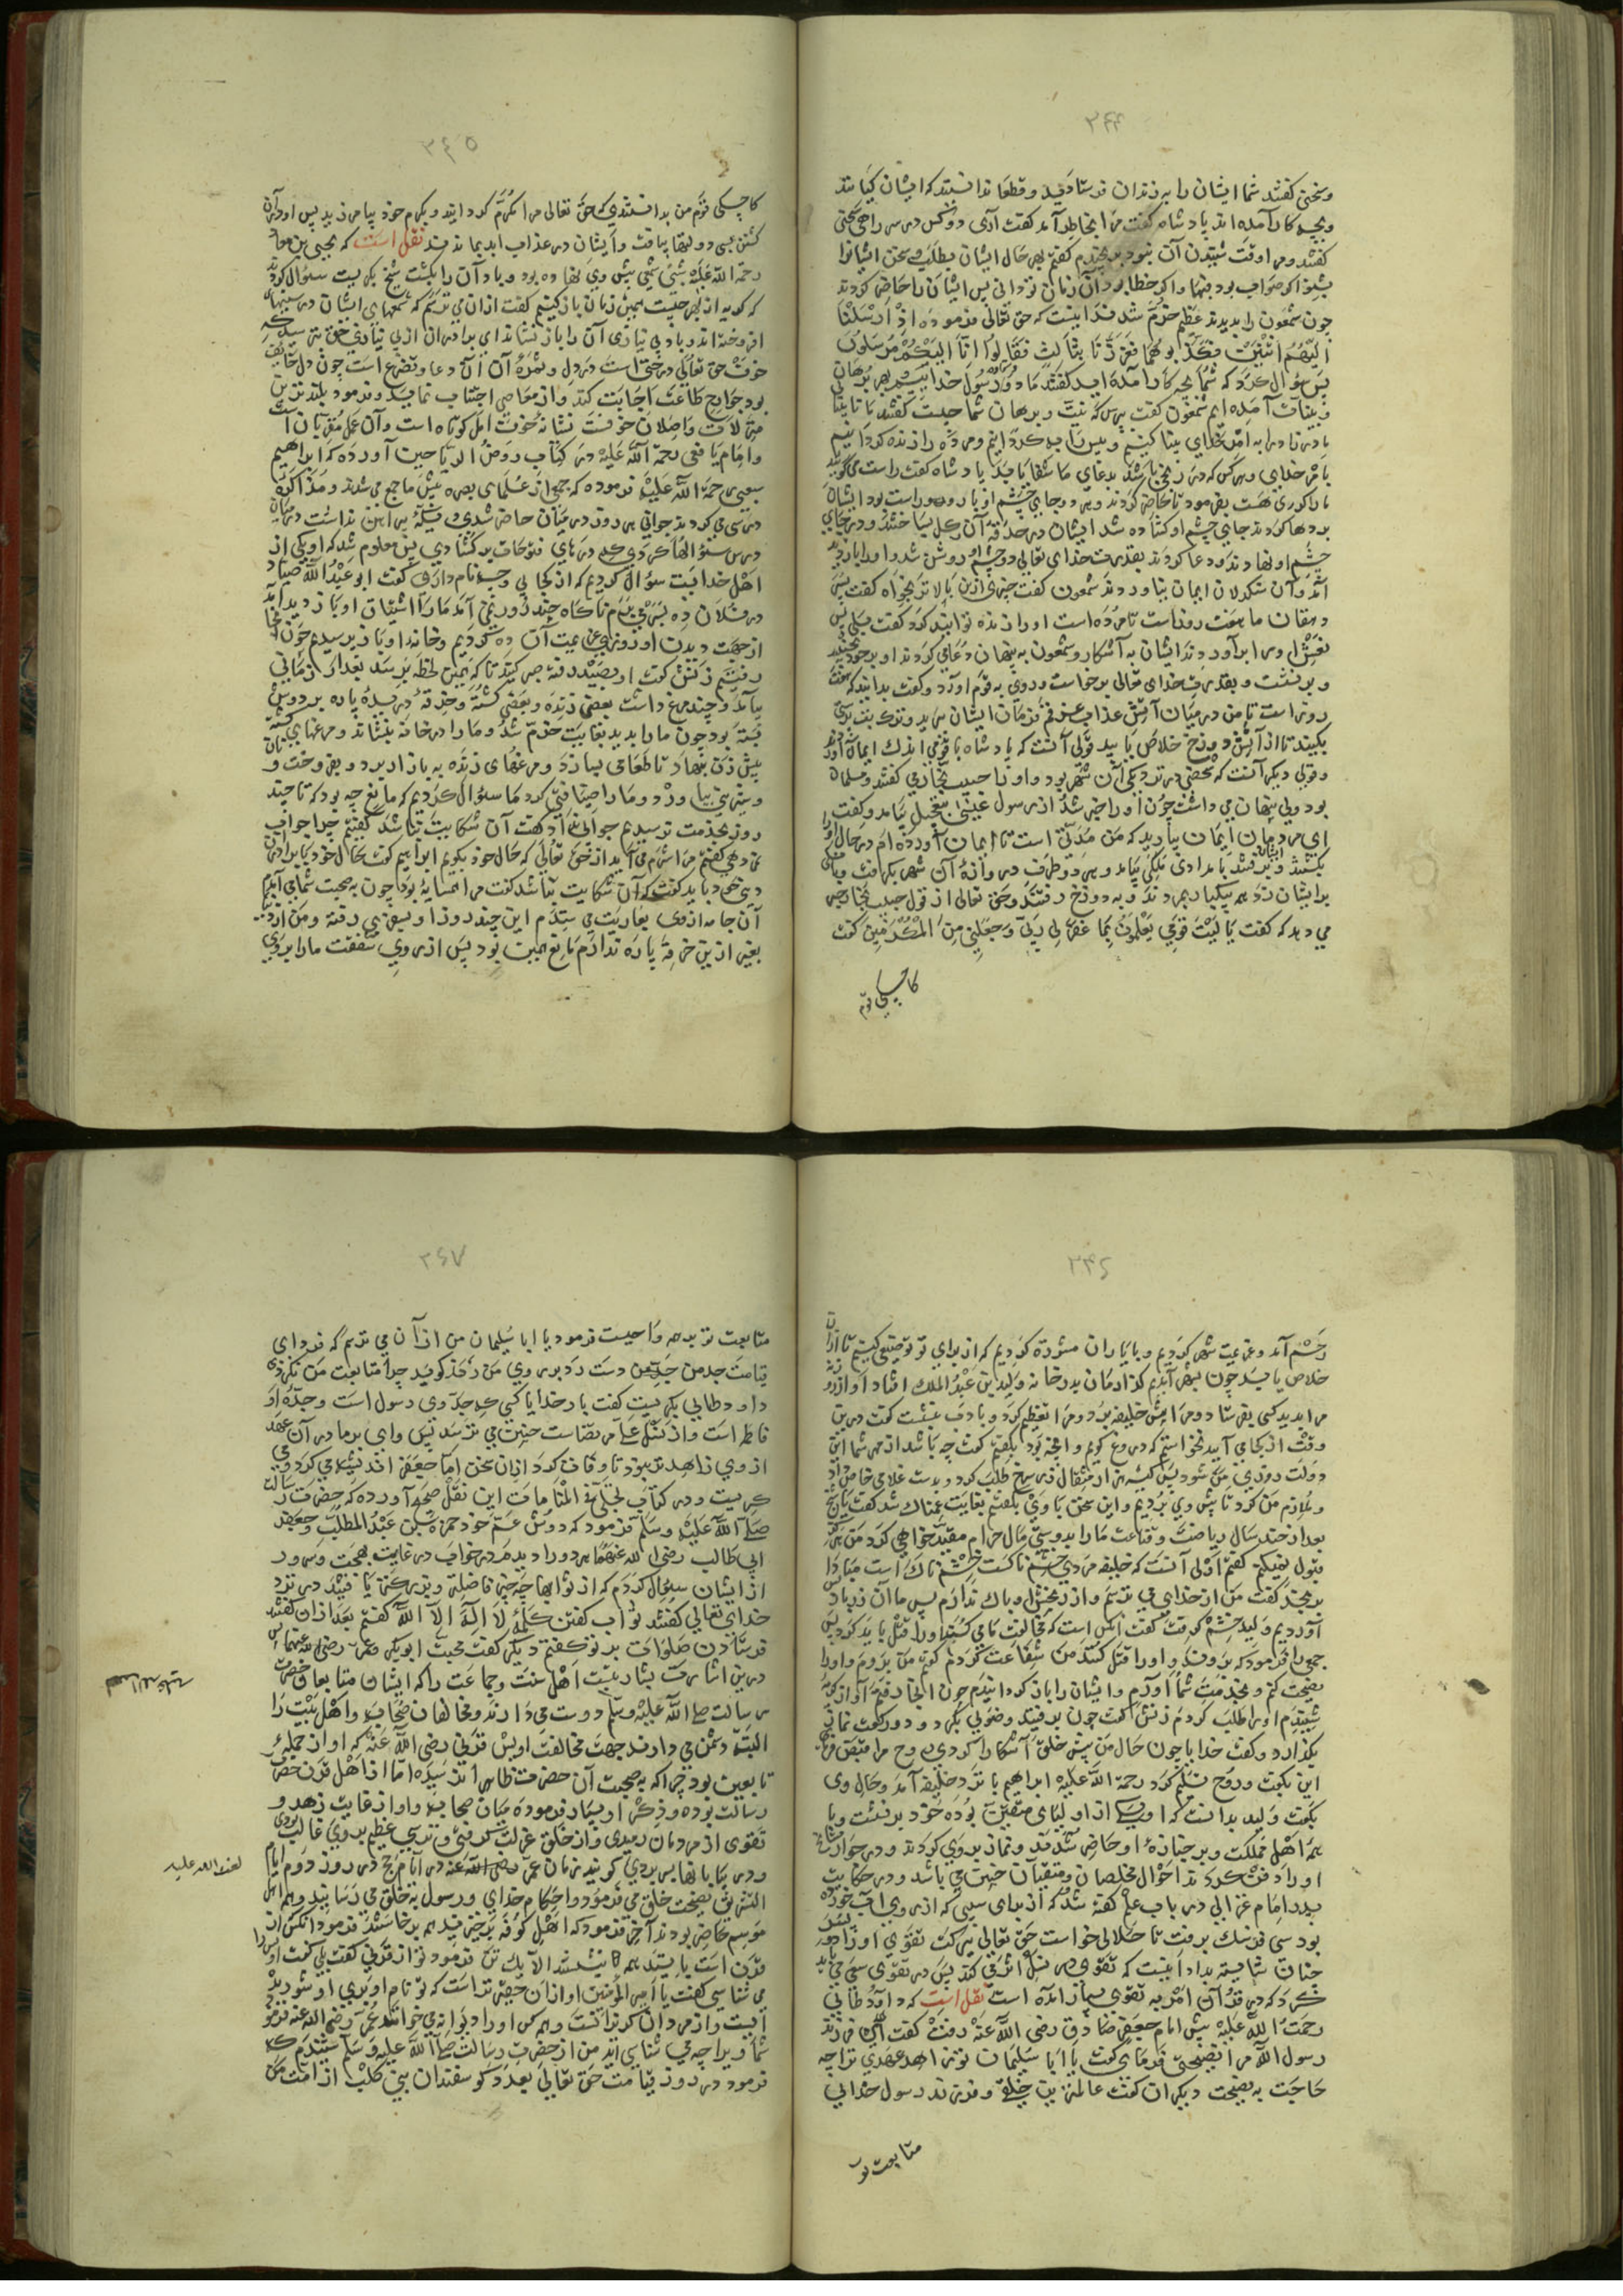 ۳۴۴
وسختی کفتند شما ایشان را بهر زندان فرستادید و قطعا ندانستید که ایشان کیانند
وبچه کار آمده اند پادشاه کفت مرا بخاطر آمد کفت آری دو کس در سر راهی سختی
کفتند ومرا وقت شنیدن آن نبود کفتم بهر حال ایشان بطلب وسخن ایشانرا
بشنو اکر صواب بود فبها واکر خطا بود آن زمان تو دانی پس ایشان را حاضر کردند
چون شمعون را بدیدند عظیم خرّم شدند اینست که حق تعالی فرموده اِذْ اَرْسَلْنَا
اِلَيْهِمُ اثْنَيْنِ فَكَذَّبُوهُمَا فَعَزَّزْنَا بِثَالِثٍ فَقَالُوا اِنَّا اِلَيْكُمْ مُرْسَلُونَ
پس سؤال کرد که شما بچه کار آمده اید کفتند ما دو رسول خدا ایم بهر برهان
وبینات آمده ایم شمعون کفت بینت وبرهان شما چیست کفتند ما نابینا
مادرزاد را به امر خدای بینا کنیم وپس را به کردانیم ومرده را زنده کردانیم
بامر خدای وهر کس که در رنجی باشد بدعای ما شفا یابد پادشاه کفت راست می کویید
ما را کوری هست بفرمود تا حاضر کردند وهر دو جای چشم او با رو راست بود ایشان
دعا کردند جای چشم او کشاده شد ایشان دو حدقه از کل بساختند ودر جای
چشم او نهادند ودعا کردند بقدرت خدای تعالی دو چشم او روشن شد واورا باز دید
اند و آن سنکدلان ایمان نیاوردند شمعون کفت چیزی ازین بالاتر بخواه کفت پسر
دهقان ما هفت روزاست تا مرده است اورا زنده توانید کرد کفت بلی پس
نعش اورا برآوردند ایشان به آشکار وشمعون به پنهان دعا می کردند او بر خود بجنبید
وبرنشست وبقدرت خدای تعالی برخواست وروی به قوم آورد وکفت بدانید که هفت
روز است تا من در میان آتش عذاب غرقم فرمان ایشان برید وترک بت پرستی
بکنید تا از آتش دوزخ خلاص یابید قولی آنست که پادشاه با قومی اندک ایمان آوردند
وقولی دیکر آنست که شخصی در نزدیکی آن شهر بود واورا حبیب نجّار می کفتند ومسلمان
بود ولی پنهان می داشت چون او را خبر شد از رسول عیسی بتعجیل بیامد وکفت
ای مردمان ایمان بیارید که من مدتی است تا ایمان آورده ام در حال اورا
بکشتند وبرفتند بامدادی ملکی بیامد وهر دو طرف دروازهٔ آن شهر بکرفت وبانکی
بر ایشان زد همه بیکبار بمردند وبه دوزخ رفتند وحق تعالی از قول حبیب نجّار خبر
می دهد که کفت يَا لَيْتَ قَوْمِي يَعْلَمُونَ بِمَا غَفَرَ لِي رَبِّي وَجَعَلَنِي مِنَ الْمُكْرَمِينَ کفت
کاجکی قوم
۳۴۵
کاجکی قوم من بدانستندی که حق تعالی مرا مکرّم کردانید وبکرم خود بیامرزید پس او درآن
کشتن بسی دولتها یافت وایشان در عذاب ابد بماندند نقل است که یحیی بن معاذ
رحمة الله علیه شبی شمعی پیش وی نهاده بود وباد آن را بکشت شیخ بکریست سؤال کردند
که کریه از بهر چیست همین زمان باز کیریم کفت ازان می ترسم که شمعهای ایشان در سینها
افروخته اند وباد بی نیازی آن را باز نشاند ای برادران از بی نیازی حق ترسید که
خوف حق تعالی درختی است در دل وثمرهٔ آن آن دعا وتضرع است چون دل خائف
بود جوارح طاعت اجابت کند واز معاصی اجتناب نماید وفرمود بلندترین
منزلات واصلان خوفست نشانهٔ خوف امل کوتاه است وآن عمل مقربان است
وامام یافعی رحمة الله علیه در کتاب روض الریاحین آورده که ابراهیم
بصری رحمة الله علیه فرموده که جمعی از علمای بصره پیش ما جمع می شدند ومذاکره
درس می کردند جوانی هر روز در میان حاضر شدی ومسئله را این نداشت در میان
درس سؤالها کردی که درهای فتوحات بر کشادی پس معلوم شد که او یکی از
اهل خداست سؤال کردیم که از کجایی وچه نام داری کفت ابو عبدالله صیاد
در فلان ده بسر می برم ناکاه چند روز نمی آمد ما را اشتیاق او باز دیدآمد
از جهت دیدن او روزی عزیمت آن ده کردیم وخانهٔ او باز پرسیدیم چون آنجا
رفتیم زنش کفت او بصید رفته صبر کنید تا که همین لحظه برسد بعد از زمانی
بیامد وچند مرغ داشت بعضی زنده وبعضی کشته وخرقهٔ دریده پاره بر دوش
بسته بود چون ما را بدید بغایت خرّم شد وما را در خانه بنشاند ومرغهای کشته
پیش زن بنهاد تا طعامی بسازد ومرغهای زنده به بازار برد وبفروخت ونان
وشیرینی بیاورد وما را ضیافتی کرد ما سؤال کردیم که مانع چه بود که تا چند
روز بخدمت نرسیدیم جوابی نداد کفت آن شکایت نباشد کفتیم چرا جواب
نمی دهی کفتم مرا شرم می آید از حق تعالی که حال خود بکویم ابراهیم کفت حال خود با برادران
دینی می باید کفت که آن شکایت نباشد کفت مرا همسایهٔ بود چون به صحبت شما می آمدم
آن جامه از وی بعاریت می ستدم این چند روز او بسفری رفته ومن از
بغیر ازین خرقهٔ پاره ندارم مانع همین بود پس از روی شفقت ما را بروی
۳۴۶
رحم آمد وعزیمت شهر کردیم وبا یاران مشورة کردیم که از برای تو توقیعی کنیم تا ازان
خلاص یابد چون بشهر آمدیم کذار مان بدر خانه ولید بن عبدالملک افتاد او از دور
مرا بدید کسی بفرستاد ومرا پیش خلیفه برد ومرا تعظیم کرد وبا ادب بنشست کفت درین
وقت از کجا می آیید نخواستم که دروغ کویم وآنچه بود بکفتم کفت چه باشد از بهر شما این
دولت روزی من شود پس کیسهٔ هزار مثقال زر سرخ طلب کرد وبدست غلامی خاص داد
وملازم من کرد تا پیش وی بردیم واین سخن با وی بکفتم بغایت غمناک شد کفت یا شیخ
بعد از چند سال ریاضت وقناعت ما را بدوستی مال حرام مقید خواهی کرد من هرکز
قبول نمیکنم کفتم اولی آنست که خلیفه مردی خشم ناکست خشم ناک است مبادا
برنجد کفت من از خدای می ترسم واز رنجش او باک ندارم پس ما آن زر باز
آوردیم ولید خشم کرفت کفت آنکس است که مخالفت ما می کند او را قتل باید کرد پس
جمعی را فرمود که بروند واورا قتل کنند من شفاعت کردم کفتم من بروم واورا
نصیحت کنم وبخدمت شما آورم وایشان را باز کردانیدم چون آنجا رفتم آواز کریه
شنیدم اورا طلب کردم زنش کفت چون برفتید وضویی بکرد ودو رکعت نماز
بکذارد وکفت خدایا چون حال من پیش خلق آشکارا کردی روح مرا قبض فرما
این بکفت وروح تسلیم کرد رحمة الله علیه ابراهیم باز نزد خلیفه آمد وحال وی
بکفت ولید بدانست که او یکی از اولیای متقین بوده خود برنشست وبا
همه اهل مملکت وبر جنازهٔ او حاضر شدند ونماز بروی کردند ودر جوار
او را دفن کردند احوال مخلصان ومتقیان چنین می باشد ودر حکایت
پدر امام غزالی در باب علم کفته شد که از برای سیبی که از روی آب خورده
بود سی فرسنک برفت تا حلالی خواست حق تعالی ببرکت تقوی او را پسر
چنان شایسته بداد اینست که تقوی در نسل اثر می کند پس در تقوی سعی می باید
کرد که در قرآن امر به تقوی بسیار آمده است نقل است که داود طائی
رحمة الله علیه پیش امام جعفر صادق رضی الله عنه رفت کفت ای فرزند
رسول الله مرا نصیحتی فرمای کفت یا ابا سلیمان تو زاهد عهدی ترا چه
حاجت به نصیحت دیکران کفت عالمترین خلقی وفرزند رسول خدائی
متابعت تو
۳۴۷
متابعت تو بر همه واجبست فرمود یا ابا سلیمان من ازان می ترسم که فردای
قیامت جد من دست رد بر روی من زند کوید چرا متابعت من نکردی
داود طائی بکریست کفت بار خدایا کسی که جد وی رسول است وجدهٔ او
فاطمه است واز نسل علی مرتضاست چنین می ترسد پس وای بر ما در آن عهد
از وی زاهدتر نبود تا وفات کرد ازان سخن امام جعفر اندیشه می کرد ومی
کریست ودر کتاب تجلی المنامات این نقل صحیح آورده که حضرت رسالت
صلی الله علیه وسلم فرمود که دوش عمّ خود حمزه بن عبدالمطلب وجعفر
ابی طالب رضی الله عنهما هر دو را دیدم در خواب در غایت بهجت وسرور
از ایشان سؤال کردم که از ثوابها چه چیز فاضلتر وپر برکت تر یافتید در نزد
خدای تعالی کفتند ثواب کفتن کلمهٔ لا اله الا الله کفتم بعد ازان کفتند
فرستادن صلوات بر تو کفتم دیکر کفت محبت ابوبکر وعمر رضی الله عنهما پس
درین اشارت بشارتیست اهل سنت وجماعت را که ایشان متابعان حضرت
رسالت صلی الله علیه وسلم دوست می دارند ومخالفان صحابه واهل بیت را
البته دشمن می دارند جهت مخالفت اویس قرنی رضی الله عنه که او از جملهٔ
تابعین بود چرا که به صحبت آن حضرت ظاهرا نرسیده اما از اهل قرن حضرت
رسالت بوده وذکر او بسیار فرموده میان صحابه واو از غایت زهد و
تقوی از مردمان رمیدی واز خلق عزلت کرفتی وترسی عظیم بروی غالب بودی
ودر بیابانها بسر بردی کویند زمان عمر رضی الله عنه در ایام حج در روز دوم ایام
التشریق نصیحت خلق می فرمود واحکام خدای ورسول به خلق می رسانید وهم اهل
موسم حاضر بودند آخر فرمود که اهل کوفه برخیزید همه برخاستند فرمود آنکس از
قرن است بایستد همه بنشستند الا یک تن فرمود تو از قرنی کفت بلی کفت اویس را
می شناسی کفت یا امیر المؤمنین او ازان حقیرتر است که تو نام او بری او شوریده
ایست واز مردمان کریزانست وهمه کس او را دیوانه می خوانند عمر رضی الله عنه فرمود
شما ویرا چه می شناسید من از حضرت رسالت صلی الله علیه وسلم شنیدم که
فرمود در روز قیامت حق تعالی بعدد کوسفندان بنی کلب از امت من
لعنت الله علیه